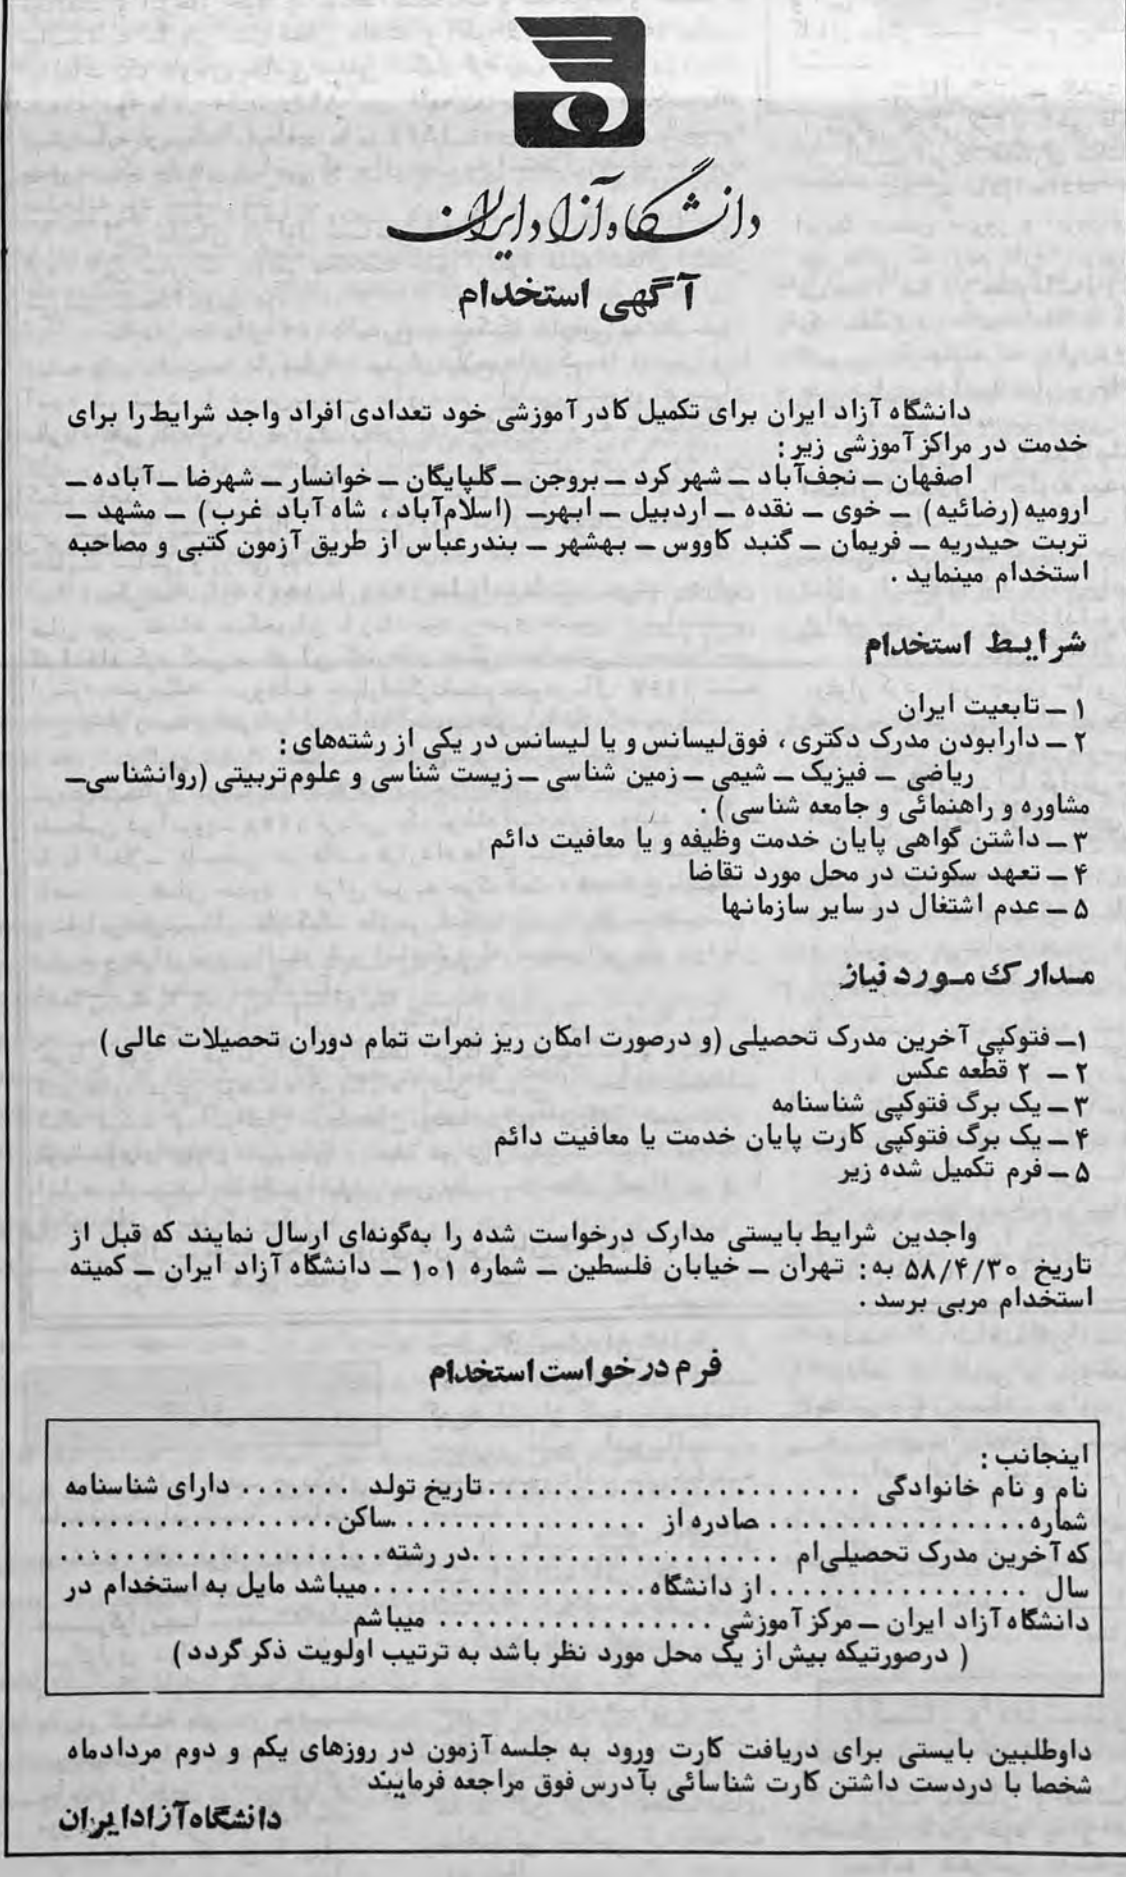 دانشگاه آزاد ایران
آگهی استخدام
دانشگاه آزاد ایران برای تکمیل کادر آموزشی خود تعدادی افراد واجد شرایط را برای
خدمت در مراکز آموزشی زیر :
اصفهان ـ نجف‌آباد ـ شهر کرد ـ بروجن ـ گلپایگان ـ خوانسار ـ شهرضا ـ آباده ـ
ارومیه (رضائیه) ـ خوی ـ نقده ـ اردبیل ـ ابهرـ (اسلام‌آباد ، شاه آباد غرب) ـ مشهد ـ
تربت حیدریه ـ فریمان ـ گنبد کاووس ـ بهشهر ـ بندرعباس از طریق آزمون کتبی و مصاحبه
استخدام مینماید .
شرایط استخدام
۱ ـ تابعیت ایران
۲ ـ دارابودن مدرک دکتری ، فوق‌لیسانس و یا لیسانس در یکی از رشته‌های :
ریاضی ـ فیزیک ـ شیمی ـ زمین شناسی ـ زیست شناسی و علوم‌تربیتی (روانشناسی ـ
مشاوره و راهنمائی و جامعه شناسی) .
۳ ـ داشتن گواهی پایان خدمت وظیفه و یا معافیت دائم
۴ ـ تعهد سکونت در محل مورد تقاضا
۵ ـ عدم اشتغال در سایر سازمانها
مدارک مورد نیاز
۱ـ فتوکپی آخرین مدرک تحصیلی (و درصورت امکان ریز نمرات تمام دوران تحصیلات عالی)
۲ ـ ۲ قطعه عکس
۳ ـ یک برگ فتوکپی شناسنامه
۴ ـ یک برگ فتوکپی کارت پایان خدمت یا معافیت دائم
۵ ـ فرم تکمیل شده زیر
واجدین شرایط بایستی مدارک درخواست شده را به‌گونه‌ای ارسال نمایند که قبل از
تاریخ ۵۸/۴/۳۰ به : تهران ـ خیابان فلسطین ـ شماره ۱۰۱ ـ دانشگاه آزاد ایران ـ کمیته
استخدام مربی برسد .
فرم درخواست استخدام
اینجانب :
نام و نام خانوادگی ........................تاریخ تولد .......دارای شناسنامه
شماره.................صادره از .................ساکن.................
که آخرین مدرک تحصیلی‌ام ....................در رشته...................
سال .................از دانشگاه.................میباشد مایل به استخدام در
دانشگاه آزاد ایران ـ مرکز آموزشی .................میباشم
( درصورتیکه بیش از یک محل مورد نظر باشد به ترتیب اولویت ذکر گردد )
داوطلبین بایستی برای دریافت کارت ورود به جلسه آزمون در روزهای یکم و دوم مردادماه
شخصا با دردست داشتن کارت شناسائی بآدرس فوق مراجعه فرمایند
دانشگاه آزاد ایران